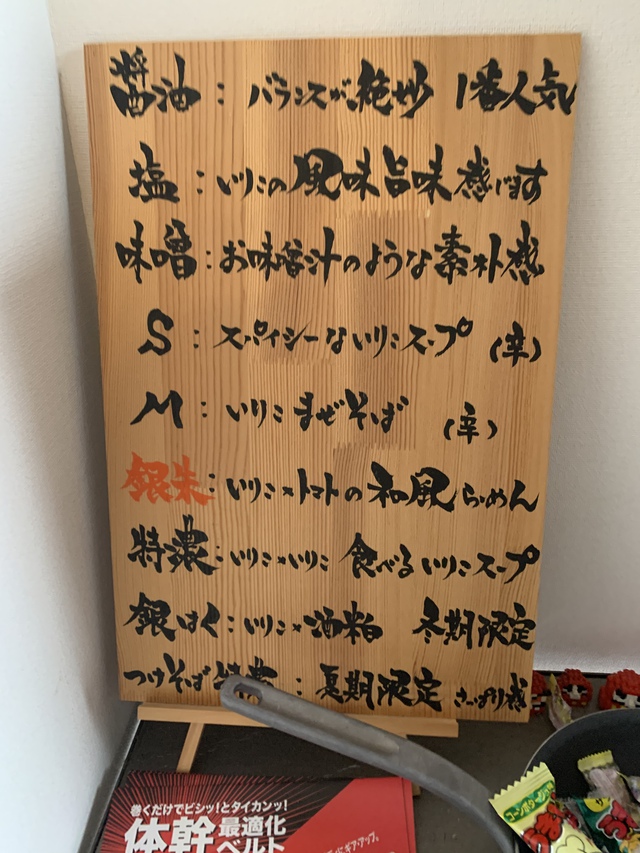 醤油：バランスが絶妙 1番人気
塩：いりこの風味旨味感じます
味噌：お味噌汁のような素朴感
S：スパイシーないりこスープ（辛）
M：いりこまぜそば（辛）
銀朱：いりこ×トマトの和風らーめん
特濃：いりこ×いりこ 食べるいりこスープ
銀はく：いりこ×酒粕 冬期限定
つけそば：夏期限定 さっぱり感
巻くだけでビシッ!とタイカンッ!
体幹 最適化
ベルト
コーンポタージュ